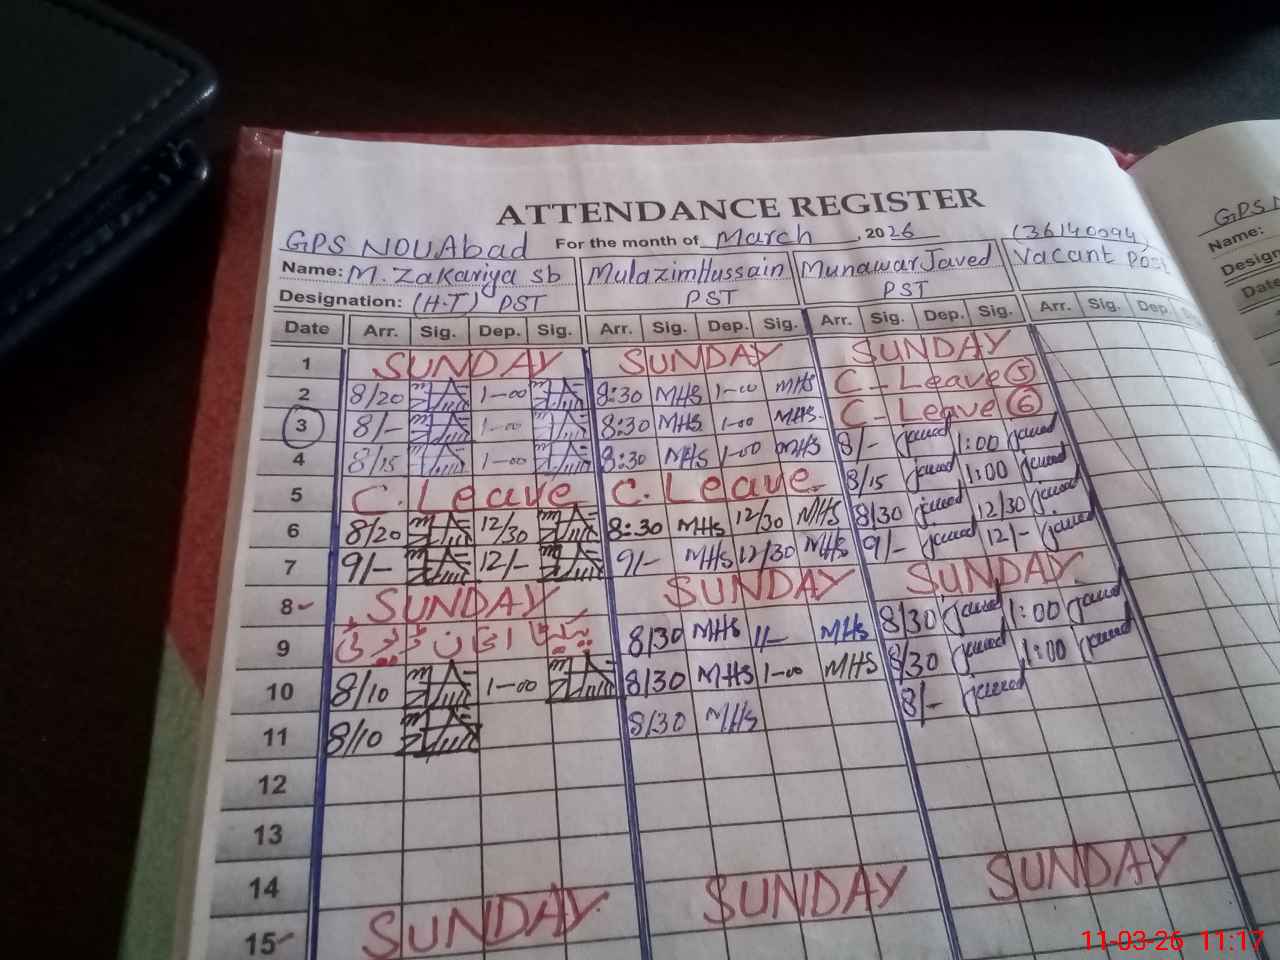 ATTENDANCE REGISTER
GPS NOUAbad For the month of March, 2026 (36140094)
Name: M. Zakariya sb Mulazim Hussain Munawar Javed Vacant Post
Designation: (H.T) PST PST PST
Date Arr. Sig. Dep. Sig. Arr. Sig. Dep. Sig. Arr. Sig. Dep. Sig. Arr. Sig. Dep.
1 SUNDAY SUNDAY SUNDAY
2 8/20 1-00 8:30 MHS 1-00 MHS C-Leave 5
3 8/- 1-00 8:30 MHS 1-00 MHS C-Leave 6
4 8/15 1-00 8:30 MHS 1-00 MHS 8/- javed 1:00 javed
5 C. Leave C. Leave 8/15 javed 1:00 javed
6 8/20 12/30 8:30 MHS 12/30 MHS 8/30 javed 12/30 javed
7 9/- 12/- 9/- MHS 12/30 MHS 9/- javed 12/- javed
8 SUNDAY SUNDAY SUNDAY
9 8/30 MHS 1/- MHS 8/30 javed 1:00 javed
10 8/10 1-00 8/30 MHS 1-00 MHS 8/30 javed 1:00 javed
11 8/10 8/30 MHS 8/- javed
12
13
14
15 SUNDAY SUNDAY SUNDAY
GPS N
Name:
Design
Date
11-03-26 11:17